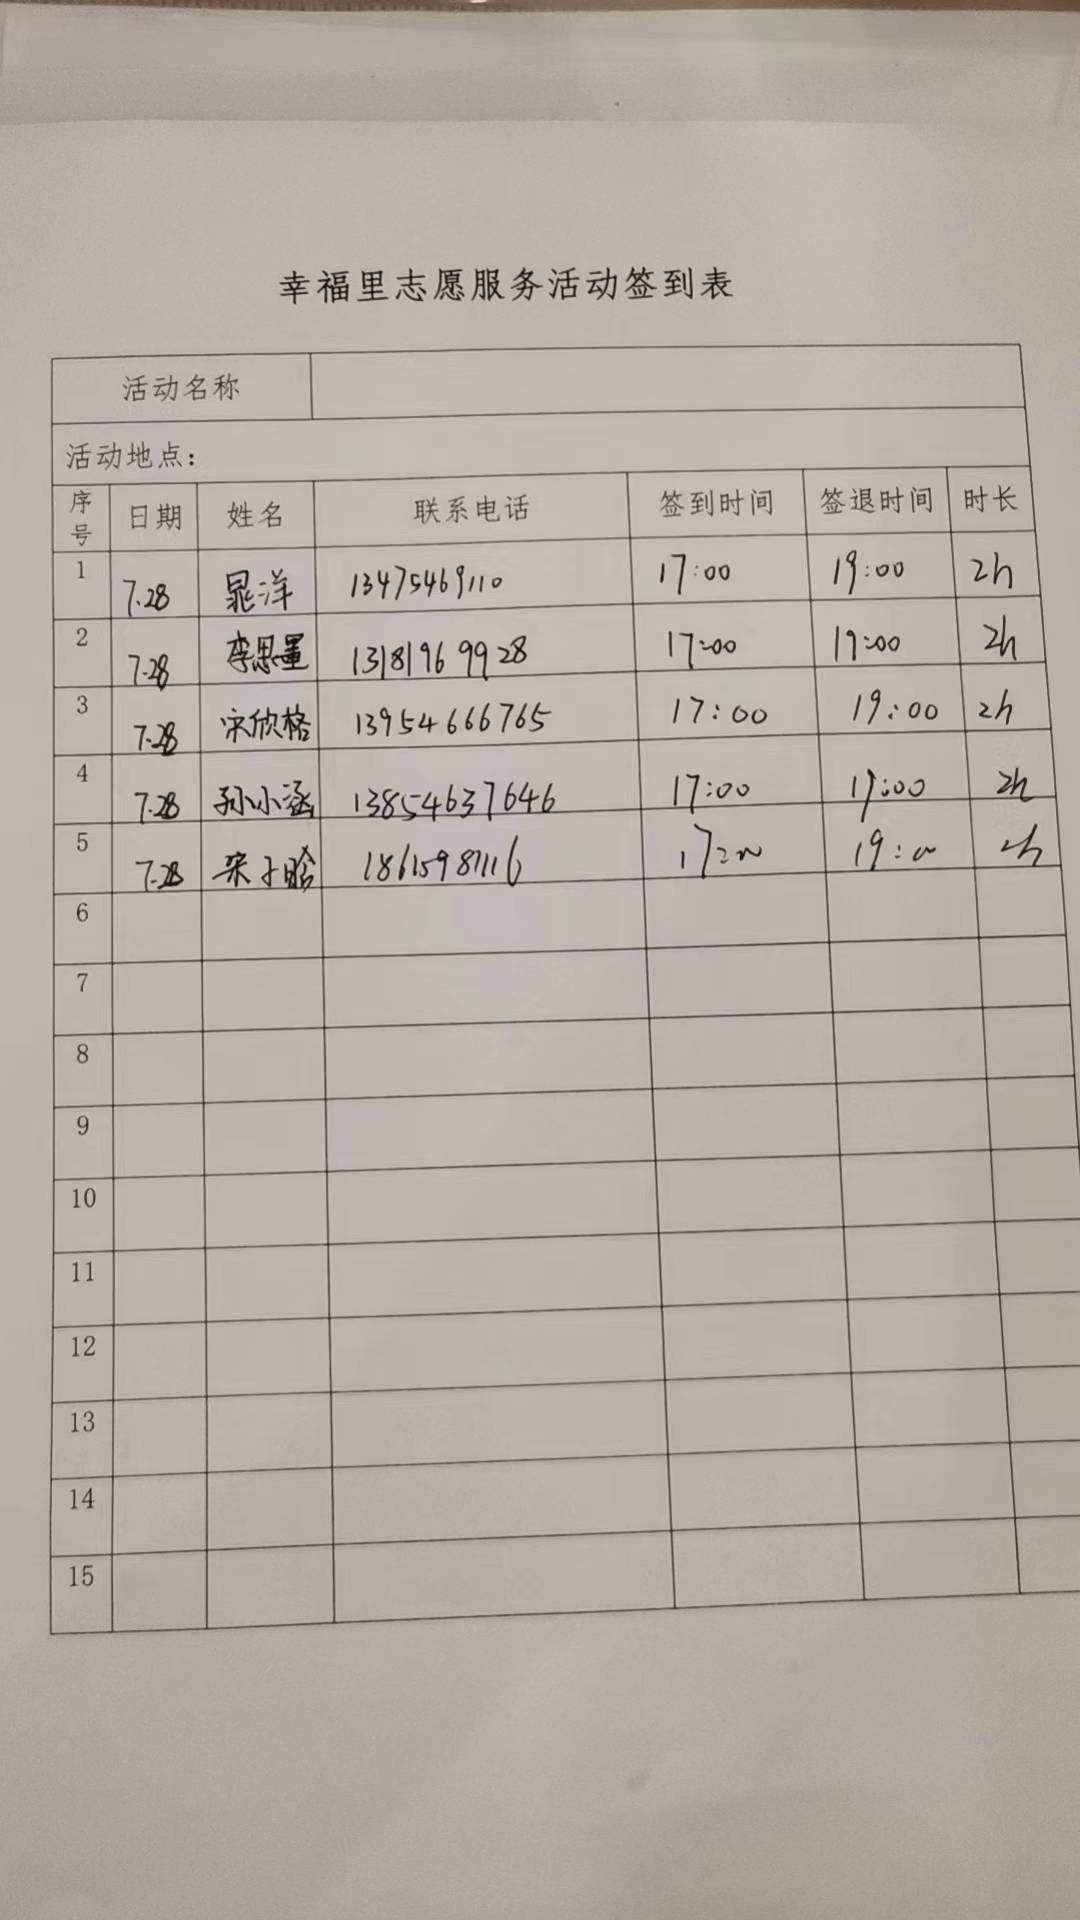 幸福里志愿服务活动签到表
活动名称
活动地点：
序号 日期 姓名 联系电话 签到时间 签退时间 时长
1 7.28 晁洋 13475469110 17:00 19:00 2h
2 7.28 李思 13181969928 17:00 19:00 2h
3 7.28 宋欣格 13954666765 17:00 19:00 2h
4 7.28 孙小涵 13854637646 17:00 19:00 2h
5 7.28 宋子晗 18615987116 17:00 19:00 2h
6
7
8
9
10
11
12
13
14
15